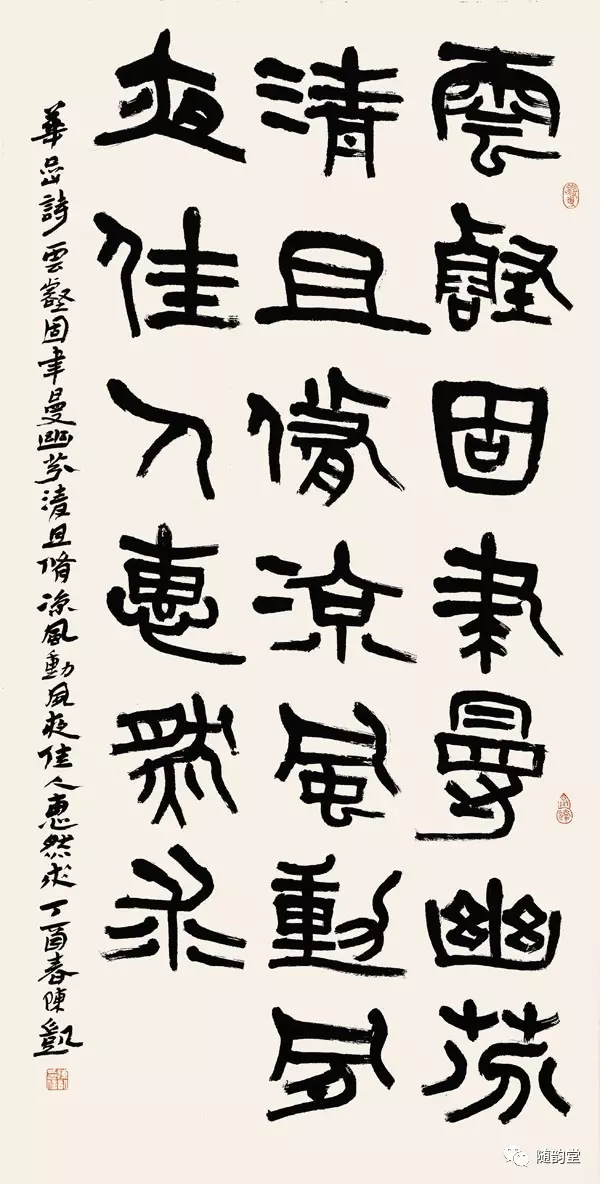 雲壑固聿曼幽芬
清且脩涼風動夙
夜佳人惠然求
華喦詩雲壑固聿曼幽芬清且脩涼風動夙夜佳人惠然求丁酉春陳凱
随韵堂